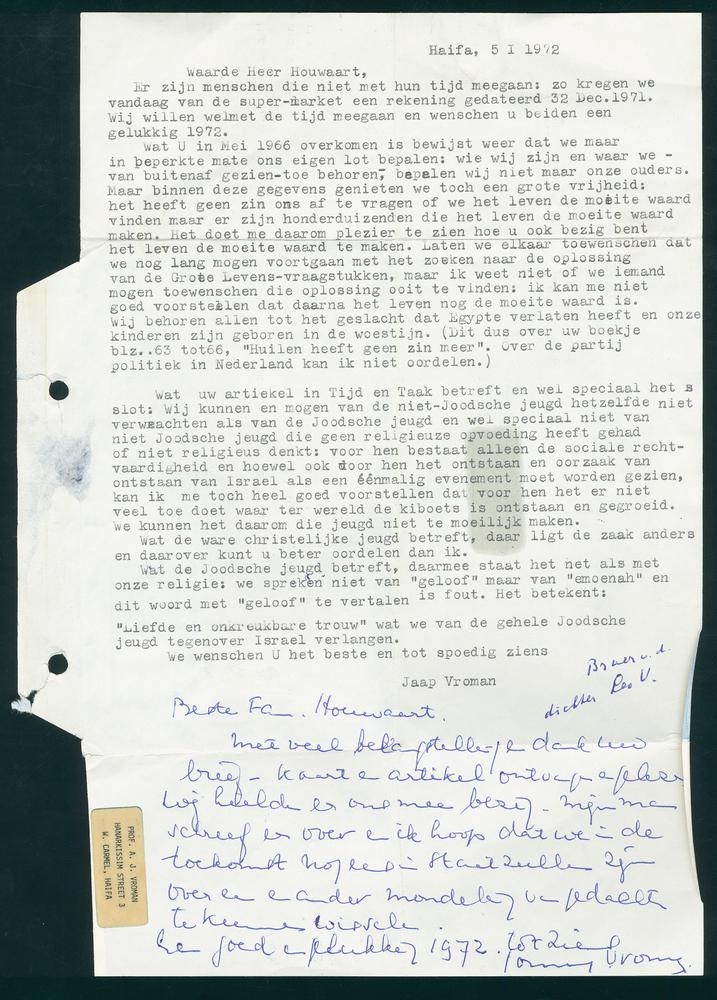 Haifa, 5 I 1972
Waarde Heer Houwaart,
Er zijn menschen die niet met hun tijd meegaan: zo kregen we
vandaag van de super-market een rekening gedateerd 32 Dec.1971.
Wij willen welmet de tijd meegaan en wenschen u beiden een
gelukkig 1972.
Wat U in Mei 1966 overkomen is bewijst weer dat we maar
in beperkte mate ons eigen lot bepalen: wie wij zijn en waar we -
van buitenaf gezien-toe behoren, bepalen wij niet maar onze ouders.
Maar binnen deze gegevens genieten we toch een grote vrijheid:
het heeft geen zin ons af te vragen of we het leven de moeite waard
vinden maar er zijn honderduizenden die het leven de moeite waard
maken. Het doet me daarom plezier te zien hoe u ook bezig bent
het leven de moeite waard te maken. Laten we elkaar toewenschen dat
we nog lang mogen voortgaan met het zoeken naar de oplossing
van de Grote Levens-vraagstukken, maar ik weet niet of we iemand
mogen toewenschen die oplossing ooit te vinden: ik kan me niet
goed voorstellen dat daarna het leven nog de moeite waard is.
Wij behoren allen tot het geslacht dat Egypte verlaten heeft en onze
kinderen zijn geboren in de woestijn. (Dit dus over uw boekje
blz..63 tot66, "Huilen heeft geen zin meer". Over de partij
politiek in Nederland kan ik niet oordelen.)
Wat uw artiekel in Tijd en Taak betreft en wel speciaal het s
slot: Wij kunnen en mogen van de niet-Joodsche jeugd hetzelfde niet
verwachten als van de Joodsche jeugd en wel speciaal niet van
niet Joodsche jeugd die geen religieuze opvoeding heeft gehad
of niet religieus denkt: voor hen bestaat alleen de sociale recht-
vaardigheid en hoewel ook door hen het ontstaan en oorzaak van
ontstaan van Israel als een éénmalig evenement moet worden gezien,
kan ik me toch heel goed voorstellen dat voor hen het er niet
veel toe doet waar ter wereld de kiboets is ontstaan en gegroeid.
We kunnen het daarom die jeugd niet te moeilijk maken.
Wat de ware christelijke jeugd betreft, daar ligt de zaak anders
en daarover kunt u beter oordelen dan ik.
Wat de Joodsche jeugd betreft, daarmee staat het net als met
onze religie: we spreken niet van "geloof" maar van "emoenah" en
dit woord met "geloof" te vertalen is fout. Het betekent:
"Liefde en onkreukbare trouw" wat we van de gehele Joodsche
jeugd tegenover Israel verlangen.
We wenschen U het beste en tot spoedig ziens
Jaap Vroman
Broer v.d.
dichter Leo V.
Beste Fam. Houwaart.
Met veel belangstelling en dank uw
brief - kaart en artikel ontvangen en gelezen
Wij hielden er ons mee bezig - mijn man
schreef er over en ik hoop dat we in de
toekomst nog eens in staat zullen zijn
over een en ander mondeling van gedachten
te kunnen wisselen.
Een goed en gelukkig 1972. tot ziens
Vroman.
PROF. A. J. VROMAN
HANARKISSIM STREET 3
W. CARMEL, HAIFA